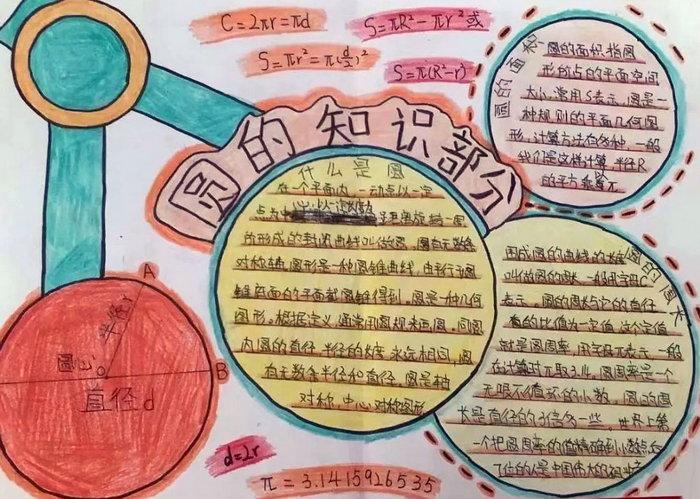 C=2πr=πd
S=πR²-πr²或
S=πr²=π(d/2)²
S=π(R²-r²)
圆的知识部分
圆的面积
圆的面积指圆
形所占的平面空间
大小,常用S表示,圆是一
种规则的平面几何图
形,计算方法有多种,一般
我们是这样计算,半径R
的平方乘
什么是圆
在一个平面内,一动点以一定
点为中心,以一定长度为
所形成的封闭曲线叫做圆,圆有无数条
对称轴,圆形是一种圆锥曲线,由平行于圆
锥底面的平面截圆锥得到。圆是一种几何
图形。根据定义,通常用圆规来画圆,同圆
内圆的直径,半径的长度永远相同,圆
有无数条半径和直径,圆是轴
对称、中心对称图形
圆的周长
围成圆的曲线的长
叫做圆的周长,一般用字母C
表示,圆的周长与它的直径
的比值为一定值,这个定值
就是圆周率,用字母π表示,一般
在计算时π取3.14,圆周率是一个
无限不循环的小数,圆的周
长是直径的3倍多一些,世界上第
一个把圆周率的值精确到小数点后
7位的人是中国伟大的
A
半径r
圆心o
B
直径d
d=2r
π=3.1415926535